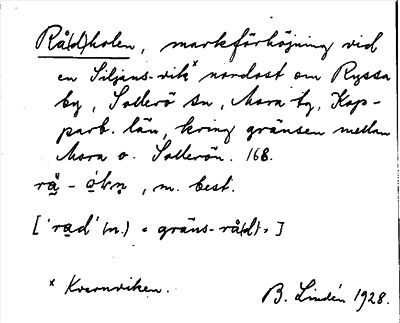 Rå(d)holen, markförhöjning vid
en Siljans-vik* nordost om Ryssa
by, Sollerö sn, Mora tg, Kop-
parb. län, kring gränsen mellan
Mora o. Sollerön. 168.
m. best.
['rad' (n.) = gräns-rå(d).]
* Kvarnviken.
B. Lindén 1928.